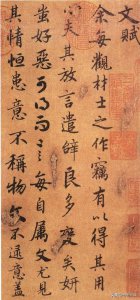 文賦
余每觀材士之作竊有以得其用
心夫其放言遣辭良多變矣妍
蚩好惡可得而言每自屬文尤見
其情恒患意不稱物文不逮意蓋